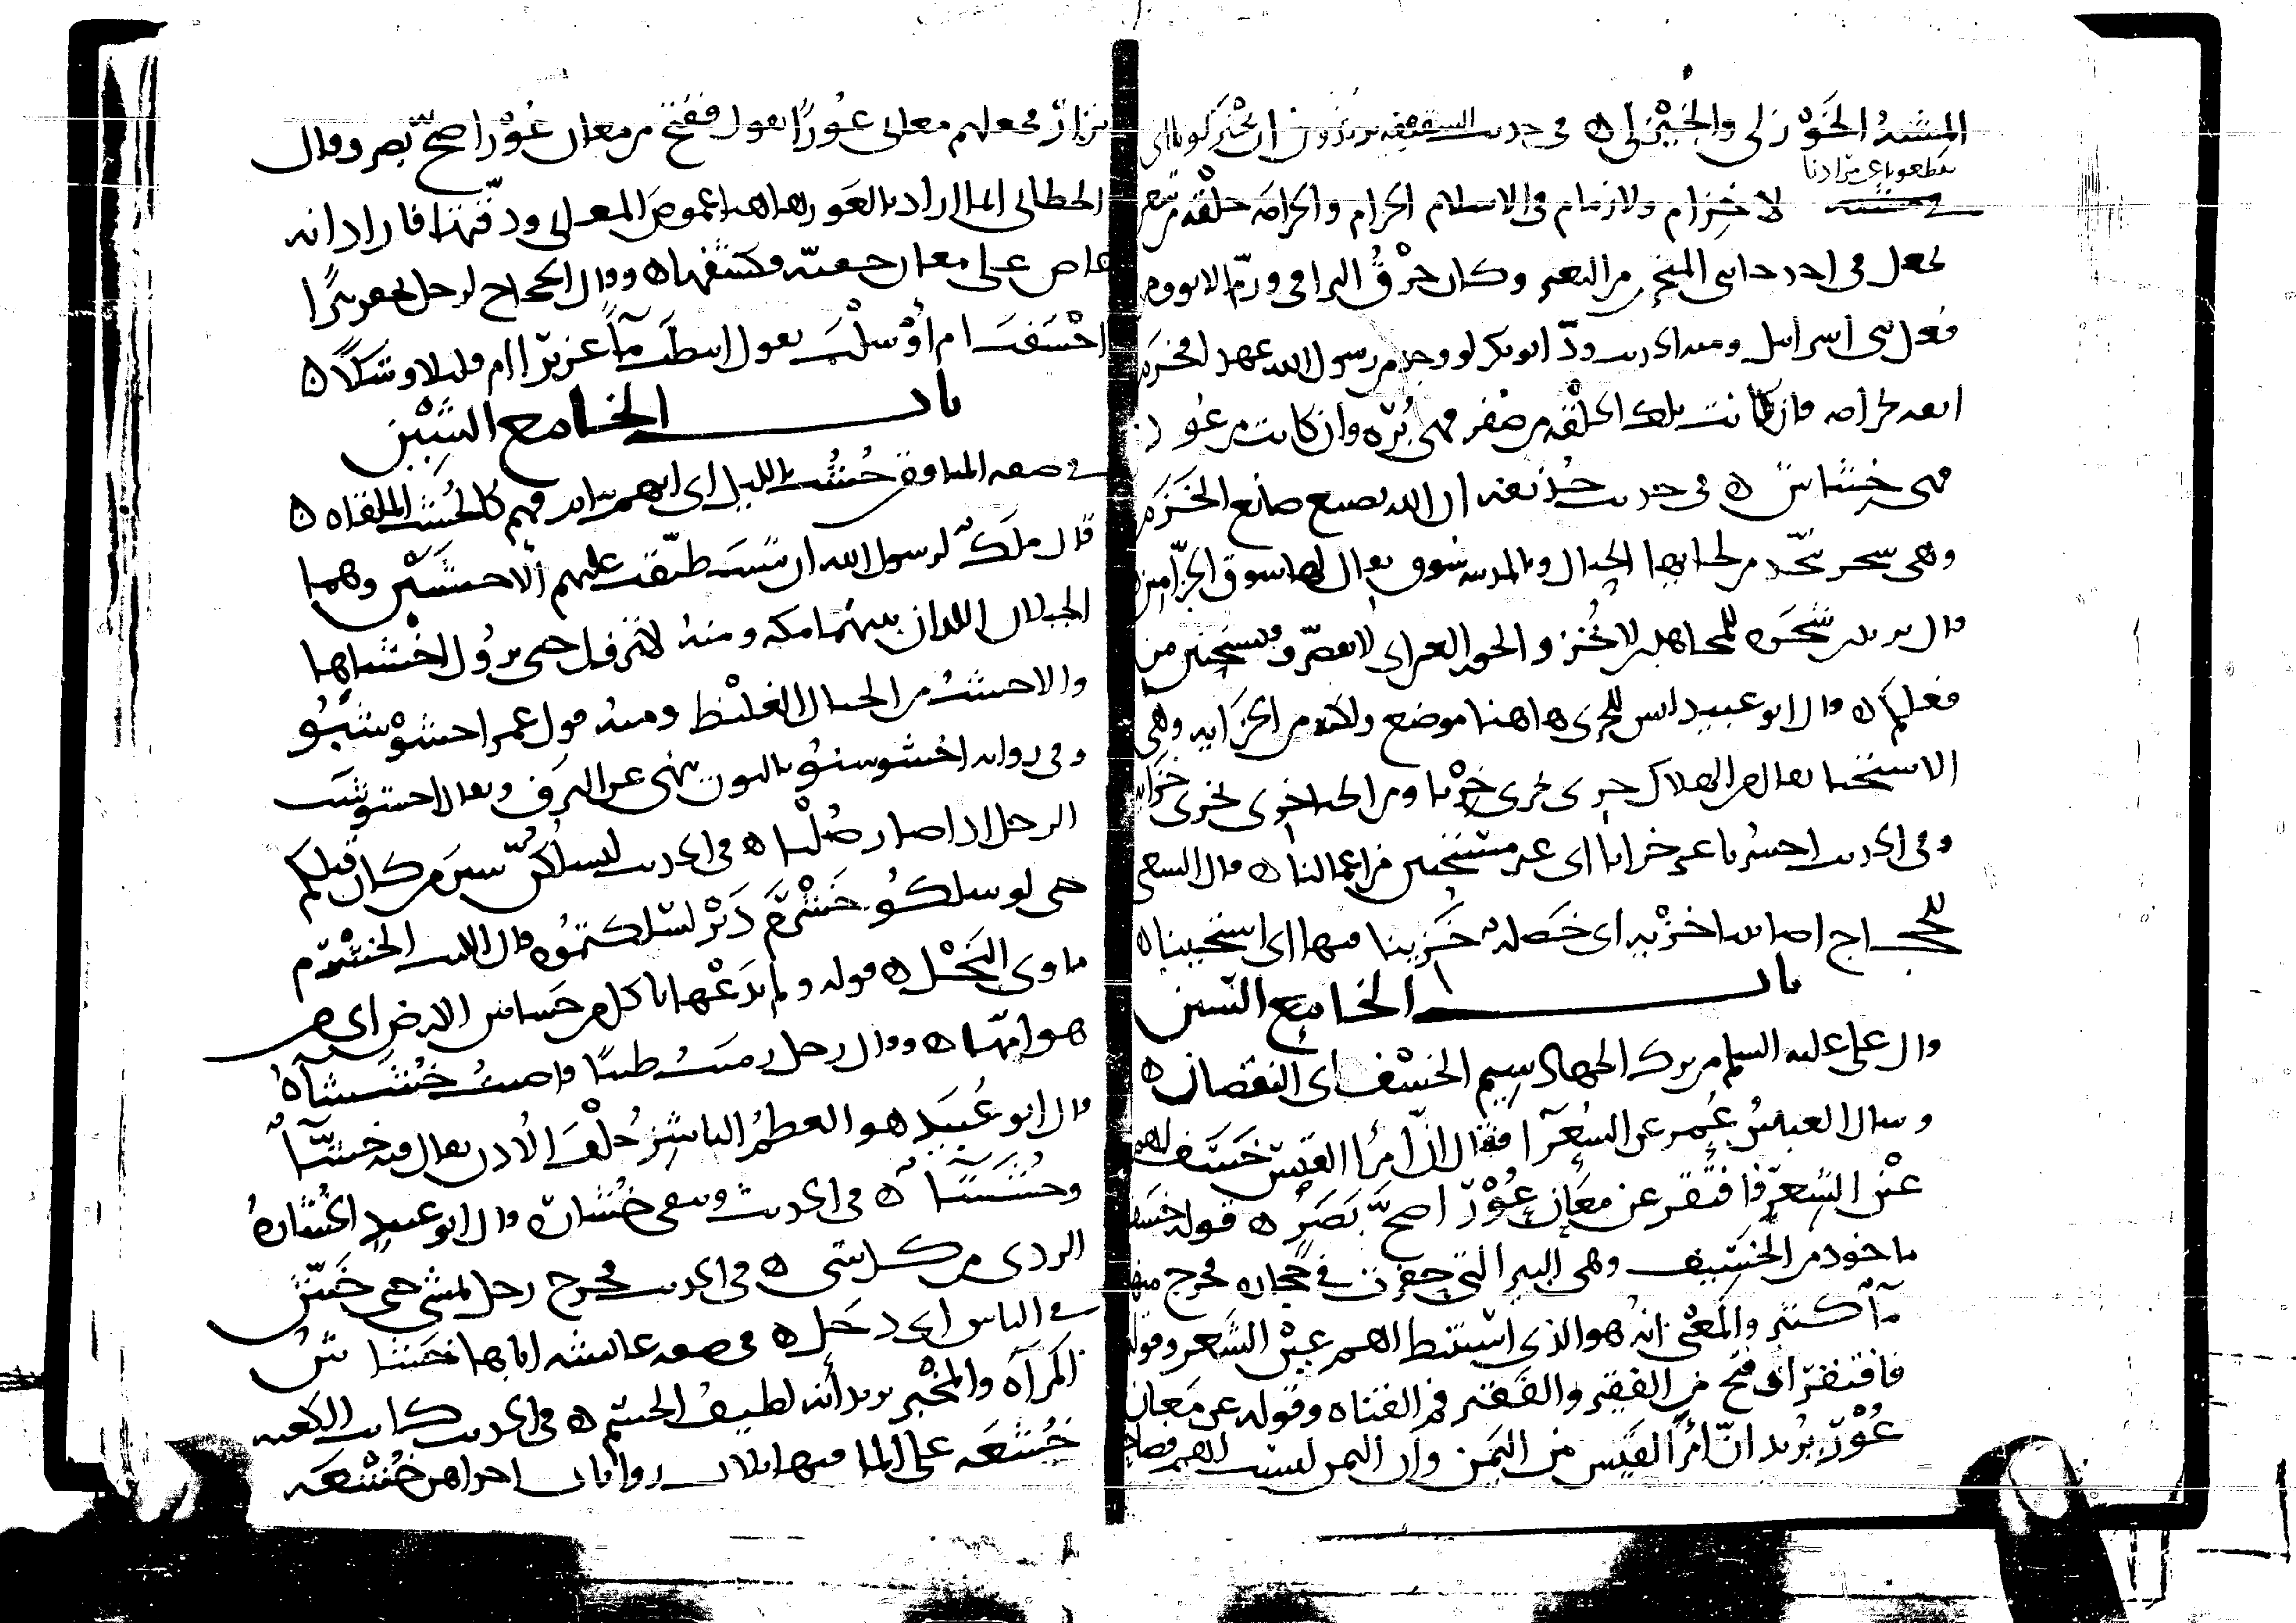 المشية الخوزلى والخيزلى ه في حديث السقيفة يريدون ان يختزلونا اي
يقطعونا عن مرادنا
لا خزام ولا زمام في الاسلام الخزام والخزامة حلقة من شعر
تجعل في احد جانبي المنخر من البعير وكان خرق التراقي وزم الانوف من
فعل بني اسرائيل ومنه الحديث ود ابو بكر لو وجد من رسول الله عهدا فخزم
انفه بخزامه فان كانت تلك الحلقة من صفر فهي بره وان كانت من عود
فهي خشاش ه في حديث حذيفة ان الله يصنع صانع الخزم
وهي شجر يتخذ من لحائها الحبال وبالمدينة سوق يقال لها سوق الخزامين
قال يزيد بن شجره للمجاهدين لا تخزو الحور العين اي لا تقصروا فيستحيين من
فعلكم ه قال ابو عبيد ليس للخزي هاهنا موضع ولكنه من الخزايه وهي
الاستحيا يقال من الهلاك خزي يخزى خزيا ومن الحيا خزي يخزى خزايه
وفي الحديث احشرنا غير خزايا اي غير مستحيين من اعمالنا ه قال الشعبي
للحجاج اصابتنا خزية اي خصلة خزينا فيها اي استحيينا ه
باب الخا مع السين
قال علي عليه السلم من ترك الجهاد سيم الخسف اي النقصان ه
وسال العباس عمر عن الشعرآ فقال ان امرأ القيس خسف لهم
عين الشعر فافتقر عن معان عور اصح بصر ه قوله خسف
ماخوذ من الخسيف وهي البير التي حفرت في حجاره فخرج منها
مآ كثير والمعنى انه هو الذي استنبط لهم عين الشعر وقوله
فافتقر اي فتح من الفقير والفقير فم القناه وقوله عن معان
عور يريد ان امرأ القيس من اليمن وان اليمن ليست لهم فصاحة
نزار فجعلهم معاني عورا يقول ففتح من معان عور اصح بصر وقال
الخطابي انما اراد بالعور هاهنا غموض المعاني ودقتها فاراد انه
غاص على معان خفية فكشفها ه وقال الحجاج لرجل يحفر بيرا
اخسفت ام اوشلت يقول انبطت مآ غزيرا ام قليلا وشلا ه
باب الخا مع الشين
في صفة المنافقين خشب بالليل اي انهم نيام فهم كالخشب الملقاه ه
قال ملك لرسول الله ان شئت طبقت عليهم الاخشبين وهما
الجبلان اللذان بينهما مكه ومنه لا تزول حتى يزول اخشباها
والاخشب من الجبال الغليظ ومنه قول عمر اخشوشبوا
وفي روايه اخشوشنوا بالنون ينهى عن الترف ويقال اخشوشب
الرجل اذا صار صلبا ه في الحديث لتسلكن سنن من كان قبلكم
حتى لو سلكوا خشرم دبر لسلكتموه قال الليث الخشرم
ماوى النحل ه قوله ولم يدعها تاكل من خشاش الارض اي من
هوامها ه وقال رجل رميت ظبيا فاصبت خششاه
قال ابو عبيد هو العظم الناشز خلف الاذن يقال فيه خشآ
وخششآ ه في الحديث وبقي خشاره قال ابو عبيد الخشاره
الردي من كل شي ه في الحديث فخرج رجل يمشي حتى خش
في الناس اي دخل ه في صفة عائشة اباها خشاش
المرآه والمخبر يريد أنه لطيف الجسم ه في الحديث كانت الكعبه
خشعه على الما فيها ثلاث روايات احداهن خشعه